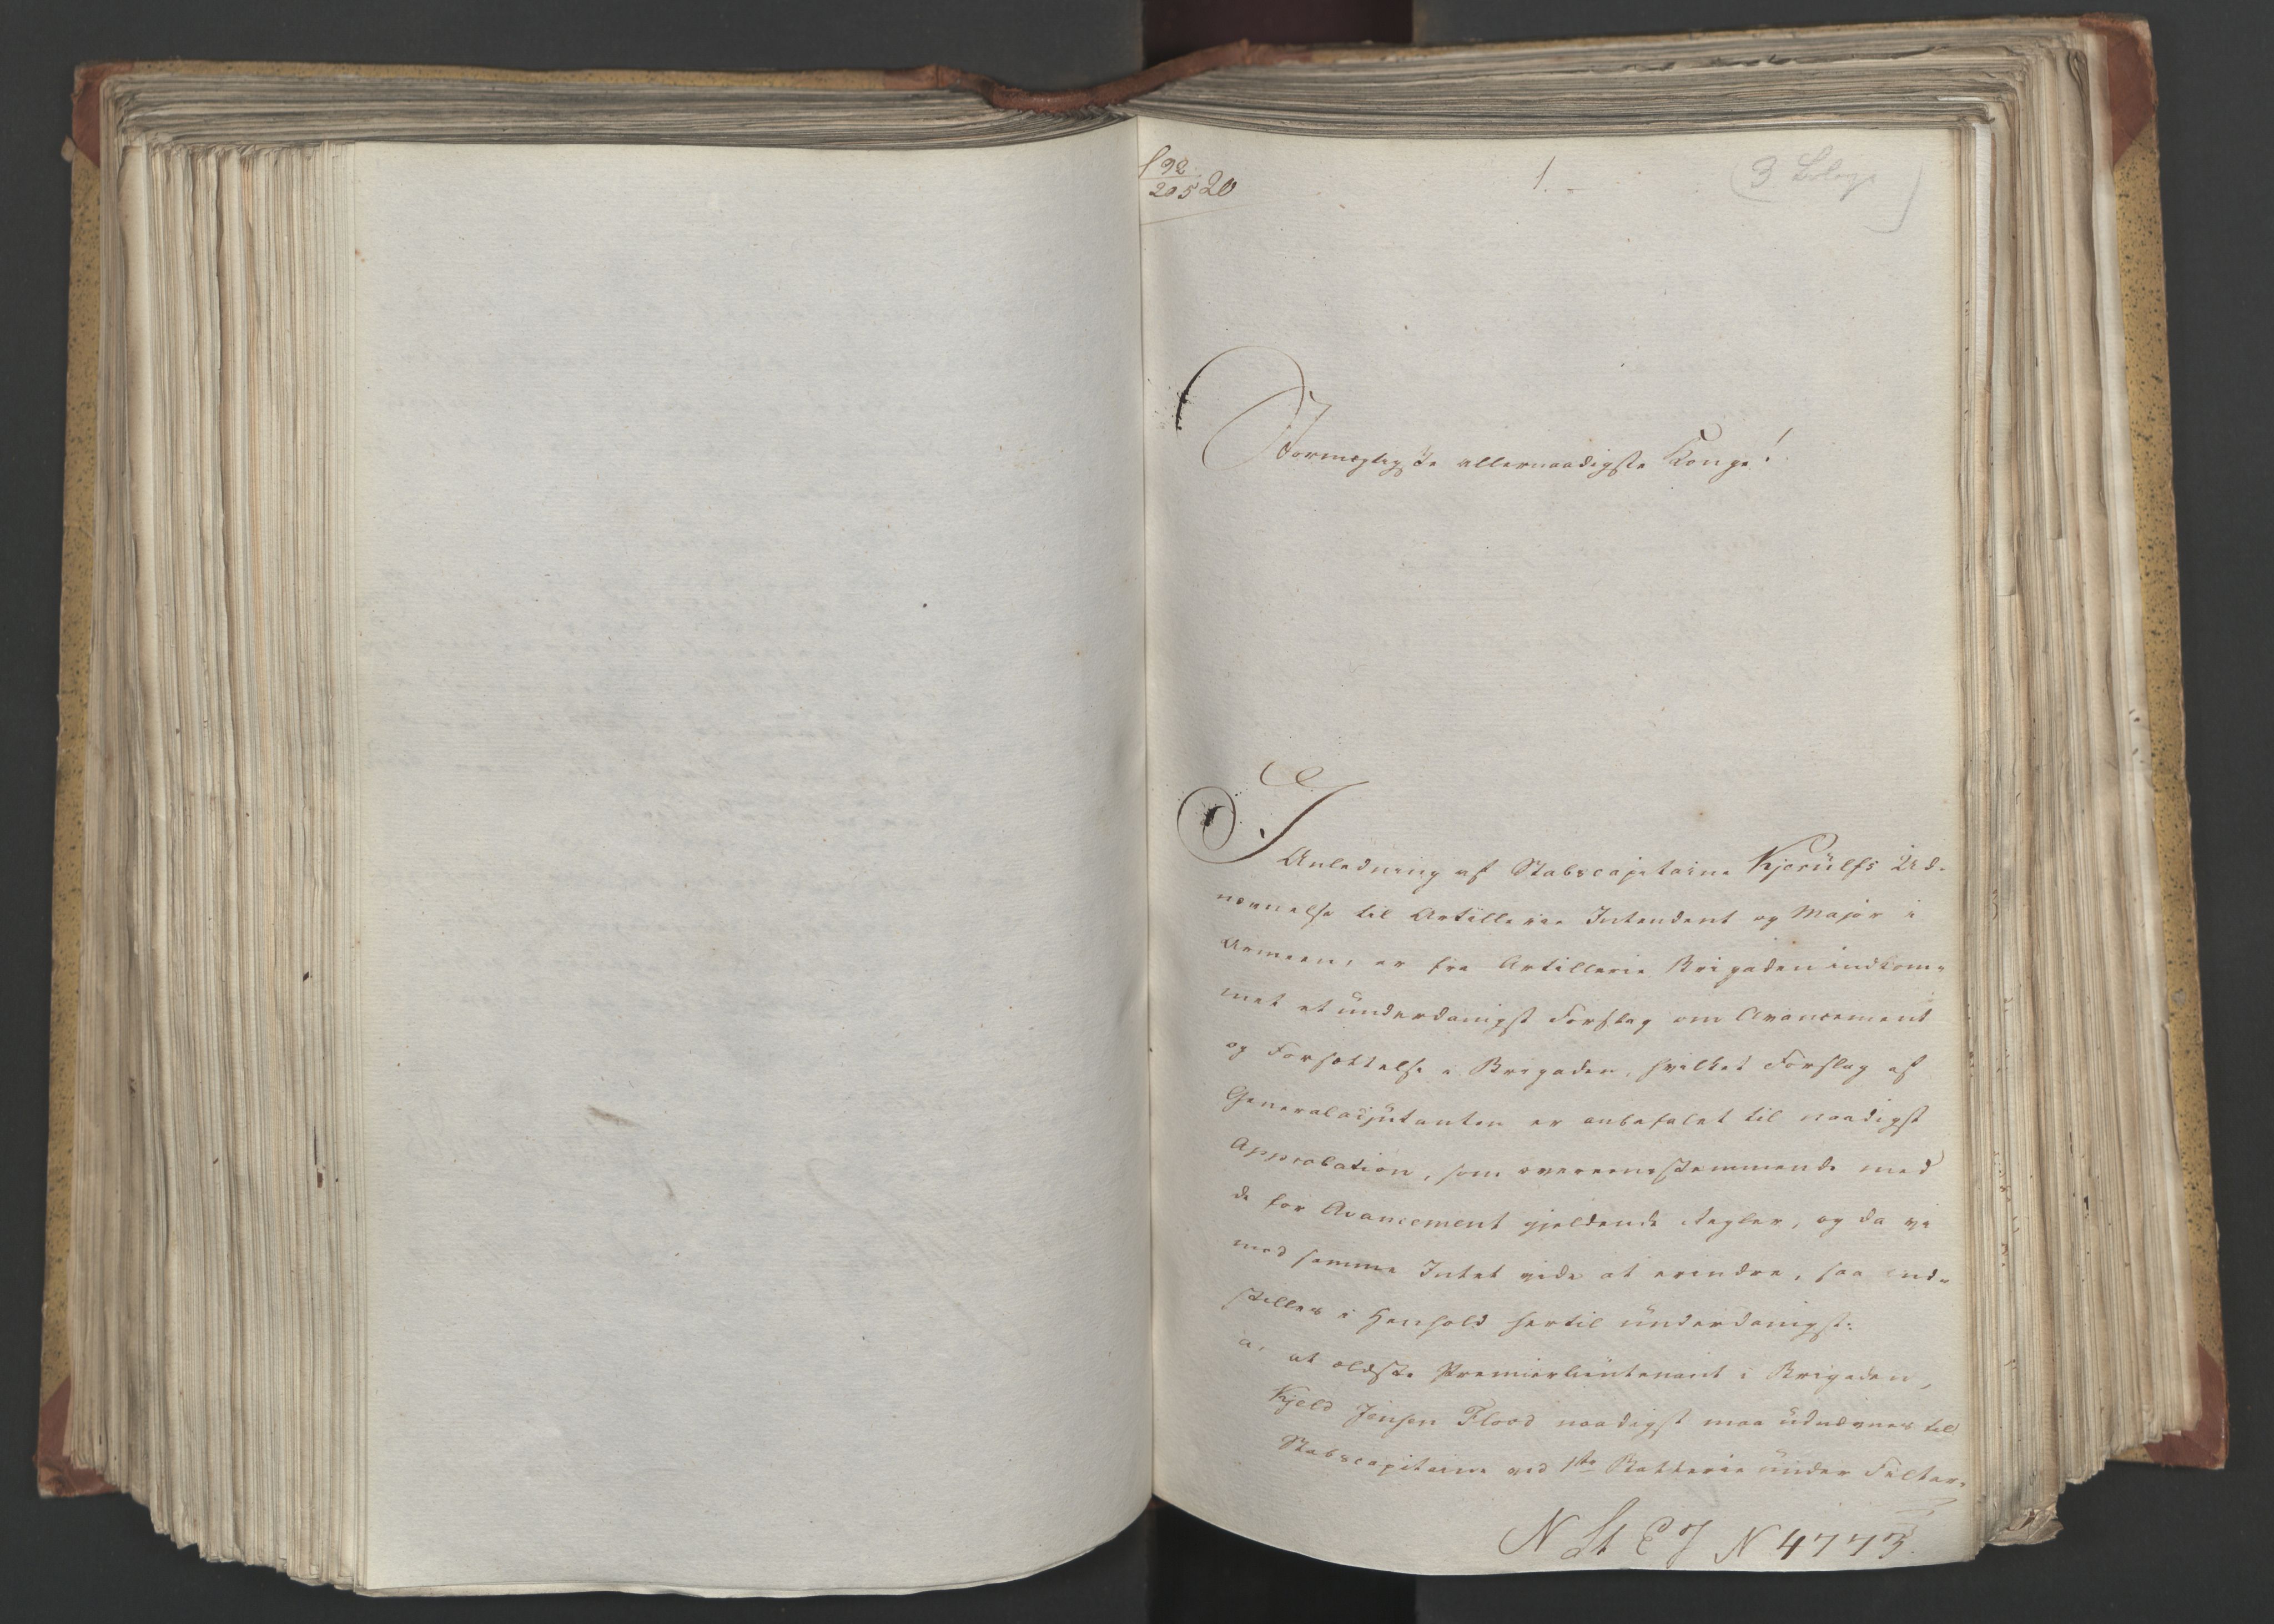 1.
3 Bilage
Stormægtigste allernaadigste Konge!
I Anledning af Stabscapitaine Kjerülfs Ud-
nævnelse til Artillerie Intendent og Major i
Armeen, er fra Artillerie Brigaden indkom-
met et underdanigst Forslag om Avancement
og Forsættelse i Brigaden, hvilket Forslag af
Generaladjutanten er anbefalet til naadigst
Approbation, som overeensstemmende med
de for Avancement gjeldende Regler, og da vi
med samme Intet vide at erindre, saa ind-
stilles i Henhold hertil underdanigst:
a, at ældste Premierlieutenant i Brigaden,
Kjeld Jensen Flood naadigst maa udnævnes til
Stabscapitaine ved 1ste Batterie under Feltar-
N St C J N 4773.